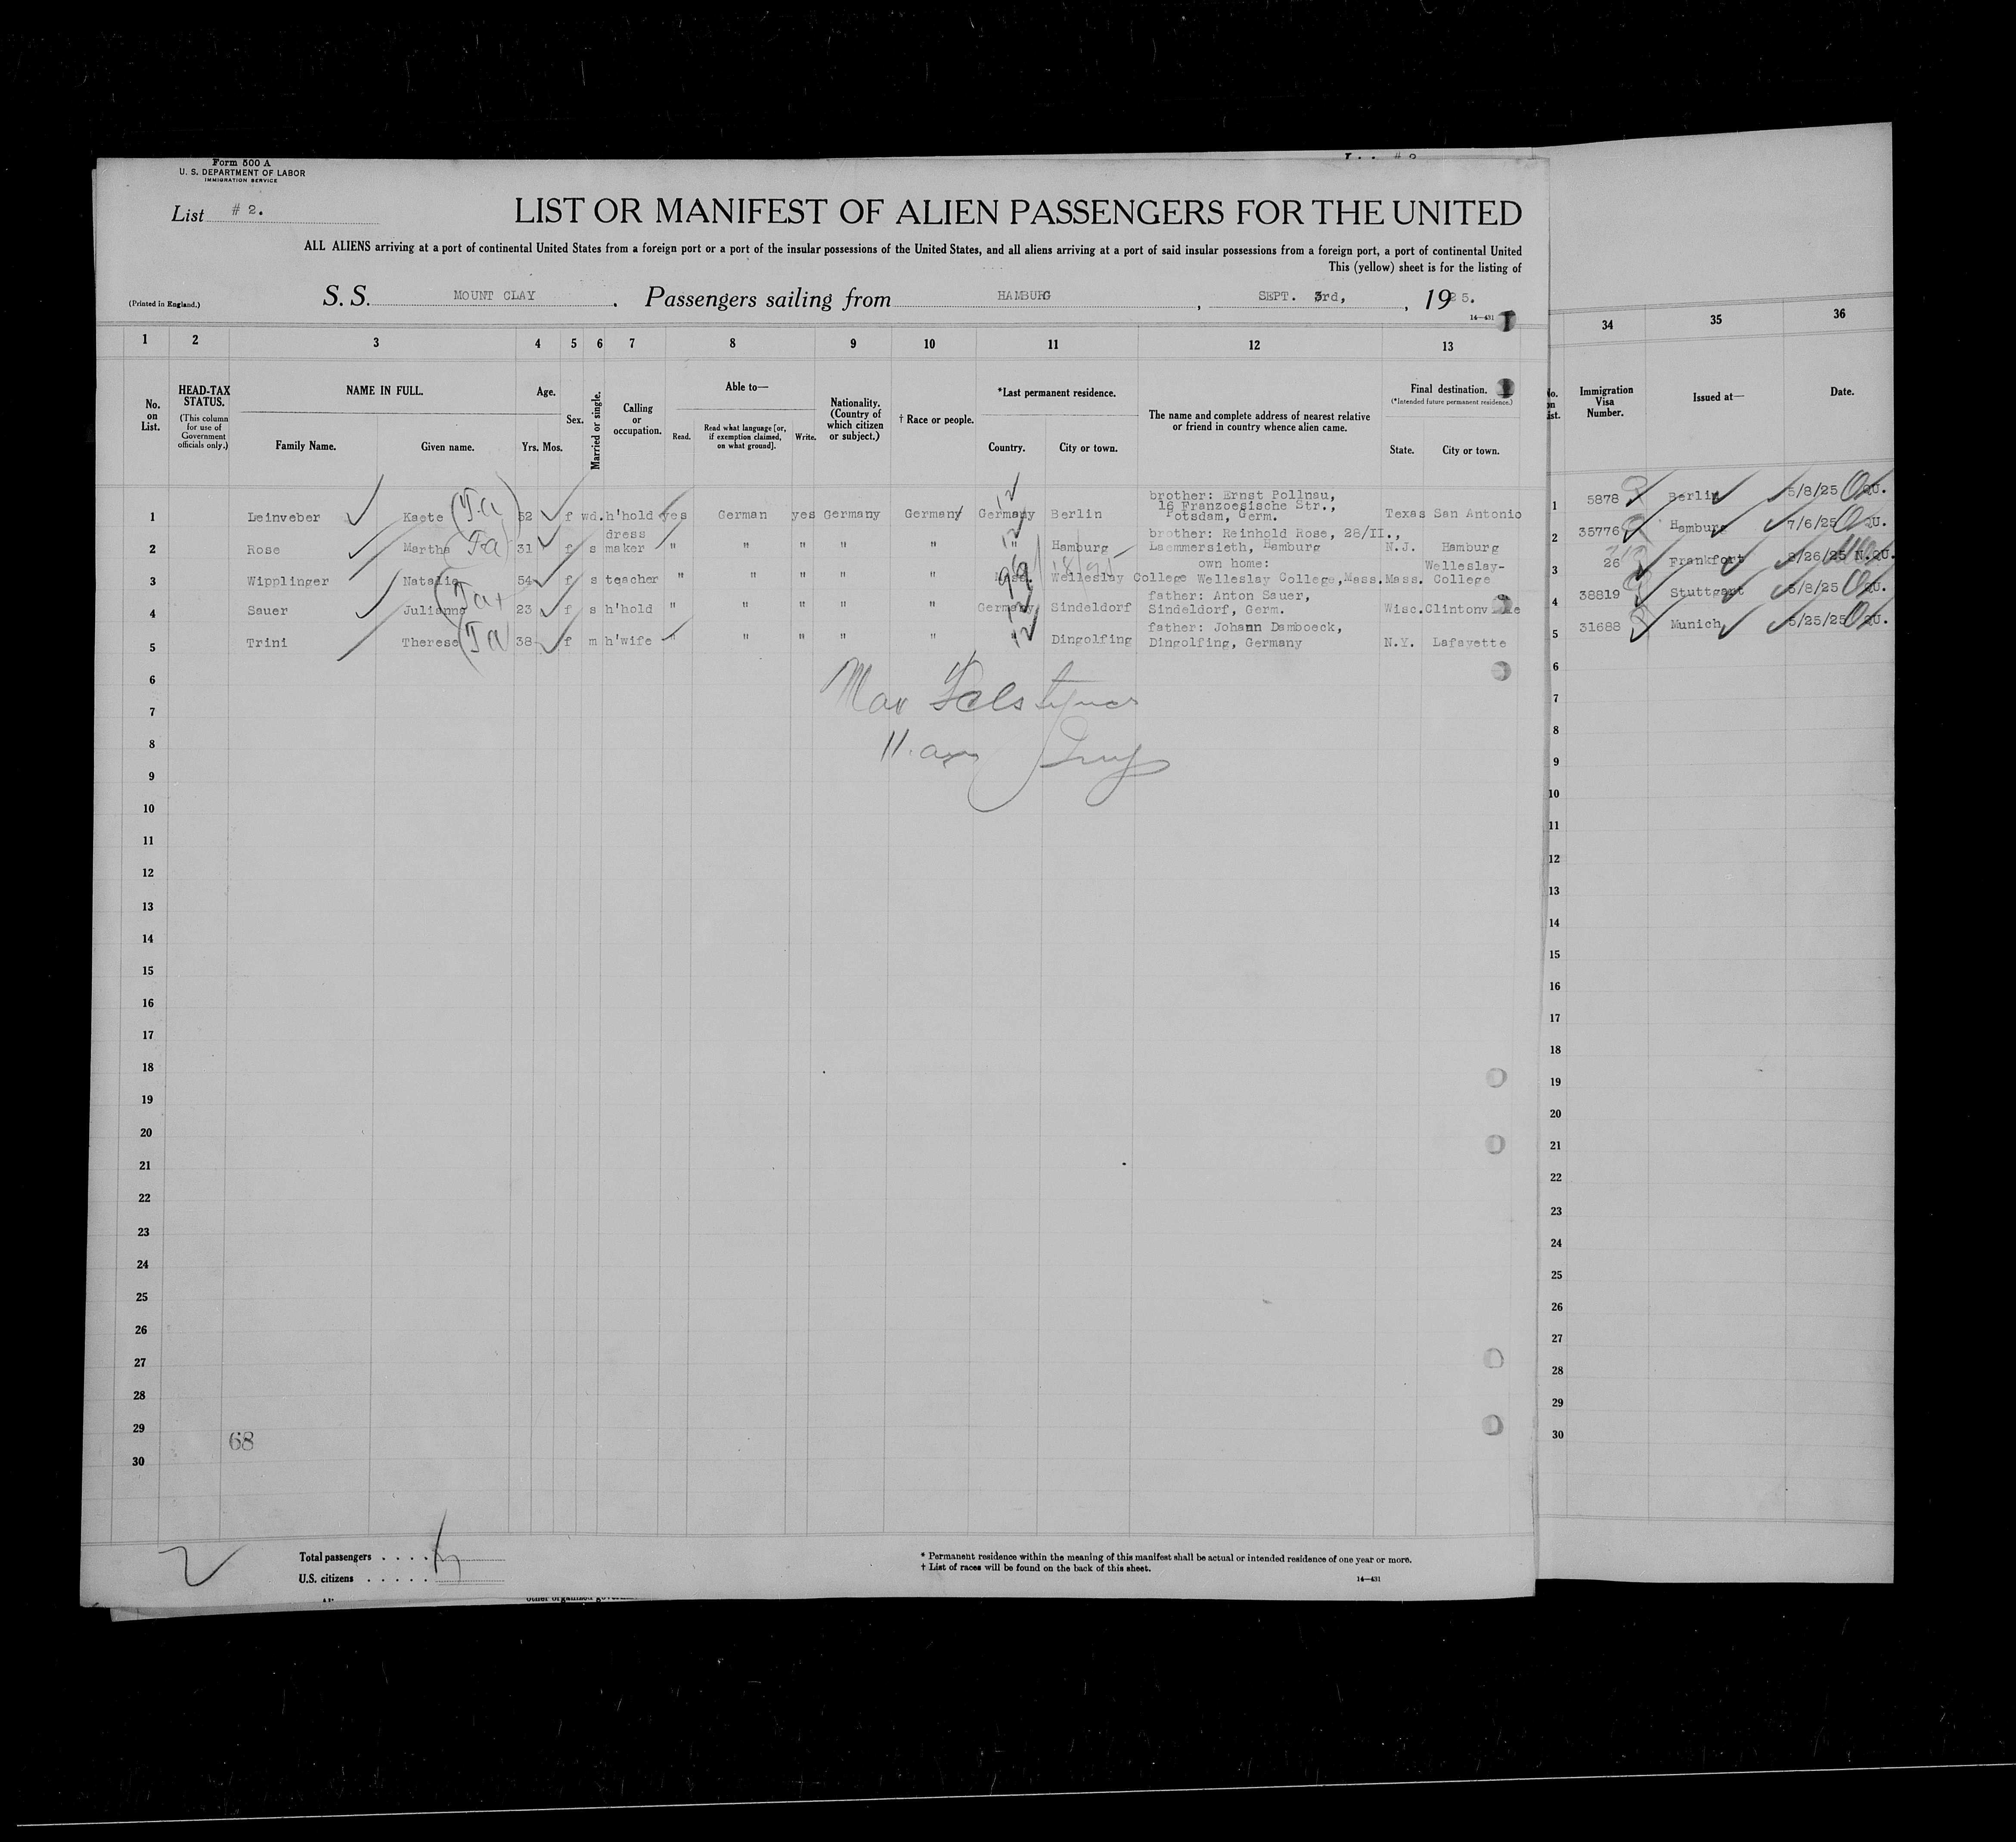 Form 500 A
U. S. DEPARTMENT OF LABOR
IMMIGRATION SERVICE
List # 2.
LIST OR MANIFEST OF ALIEN PASSENGERS FOR THE UNITED
ALL ALIENS arriving at a port of continental United States from a foreign port or a port of the insular possessions of the United States, and all aliens arriving at a port of said insular possessions from a foreign port, a port of continental United
This (yellow) sheet is for the listing of
(Printed in England.) S. S. MOUNT CLAY . Passengers sailing from HAMBURG , SEPT. 3rd, , 1925.
14—431
1 2 3 4 5 6 7 8 9 10 11 12 13 34 35 36
No. on List.
HEAD-TAX STATUS.
(This column for use of Government officials only.)
NAME IN FULL.
Family Name. Given name.
Age.
Yrs. Mos.
Sex.
Married or single.
Calling or occupation.
Able to—
Read. Read what language [or, if exemption claimed, on what ground]. Write.
Nationality. (Country of which citizen or subject.)
† Race or people.
*Last permanent residence.
Country. City or town.
The name and complete address of nearest relative or friend in country whence alien came.
Final destination.
(*Intended future permanent residence.)
State. City or town.
Immigration Visa Number.
Issued at—
Date.
1 Leinveber Kaete 52 f wd. h'hold yes German yes Germany Germany Germany Berlin brother: Ernst Pollnau, 16 Franzoesische Str., Potsdam, Germ. Texas San Antonio 1 5878 Berlin 5/8/25 QU.
2 Rose Martha 31 f s dress maker " " " " " " Hamburg brother: Reinhold Rose, 28/II., Laemmersieth, Hamburg N.J. Hamburg 2 35776 Hamburg 7/6/25 QU.
3 Wipplinger Natalie 54 f s teacher " " " " " Mass. Wellesley College own home: Wellesley College, Mass. Mass. Wellesley-College 3 26 Frankfort 8/26/25 N.QU.
4 Sauer Julianna 23 f s h'hold " " " " " Germany Sindeldorf father: Anton Sauer, Sindeldorf, Germ. Wisc. Clintonville 4 38819 Stuttgart 5/8/25 QU.
5 Trini Therese 38 f m h'wife " " " " " " Dingolfing father: Johann Damboeck, Dingolfing, Germany N.Y. Lafayette 5 31688 Munich 5/25/25 QU.
6 6
7 7
8 11. am 8
9 9
10 10
11 11
12 12
13 13
14 14
15 15
16 16
17 17
18 18
19 19
20 20
21 21
22 22
23 23
24 24
25 25
26 26
27 27
28 28
29 29
68
30 30
Total passengers . . . .
U.S. citizens . . . . .
* Permanent residence within the meaning of this manifest shall be actual or intended residence of one year or more.
† List of races will be found on the back of this sheet.
14—431